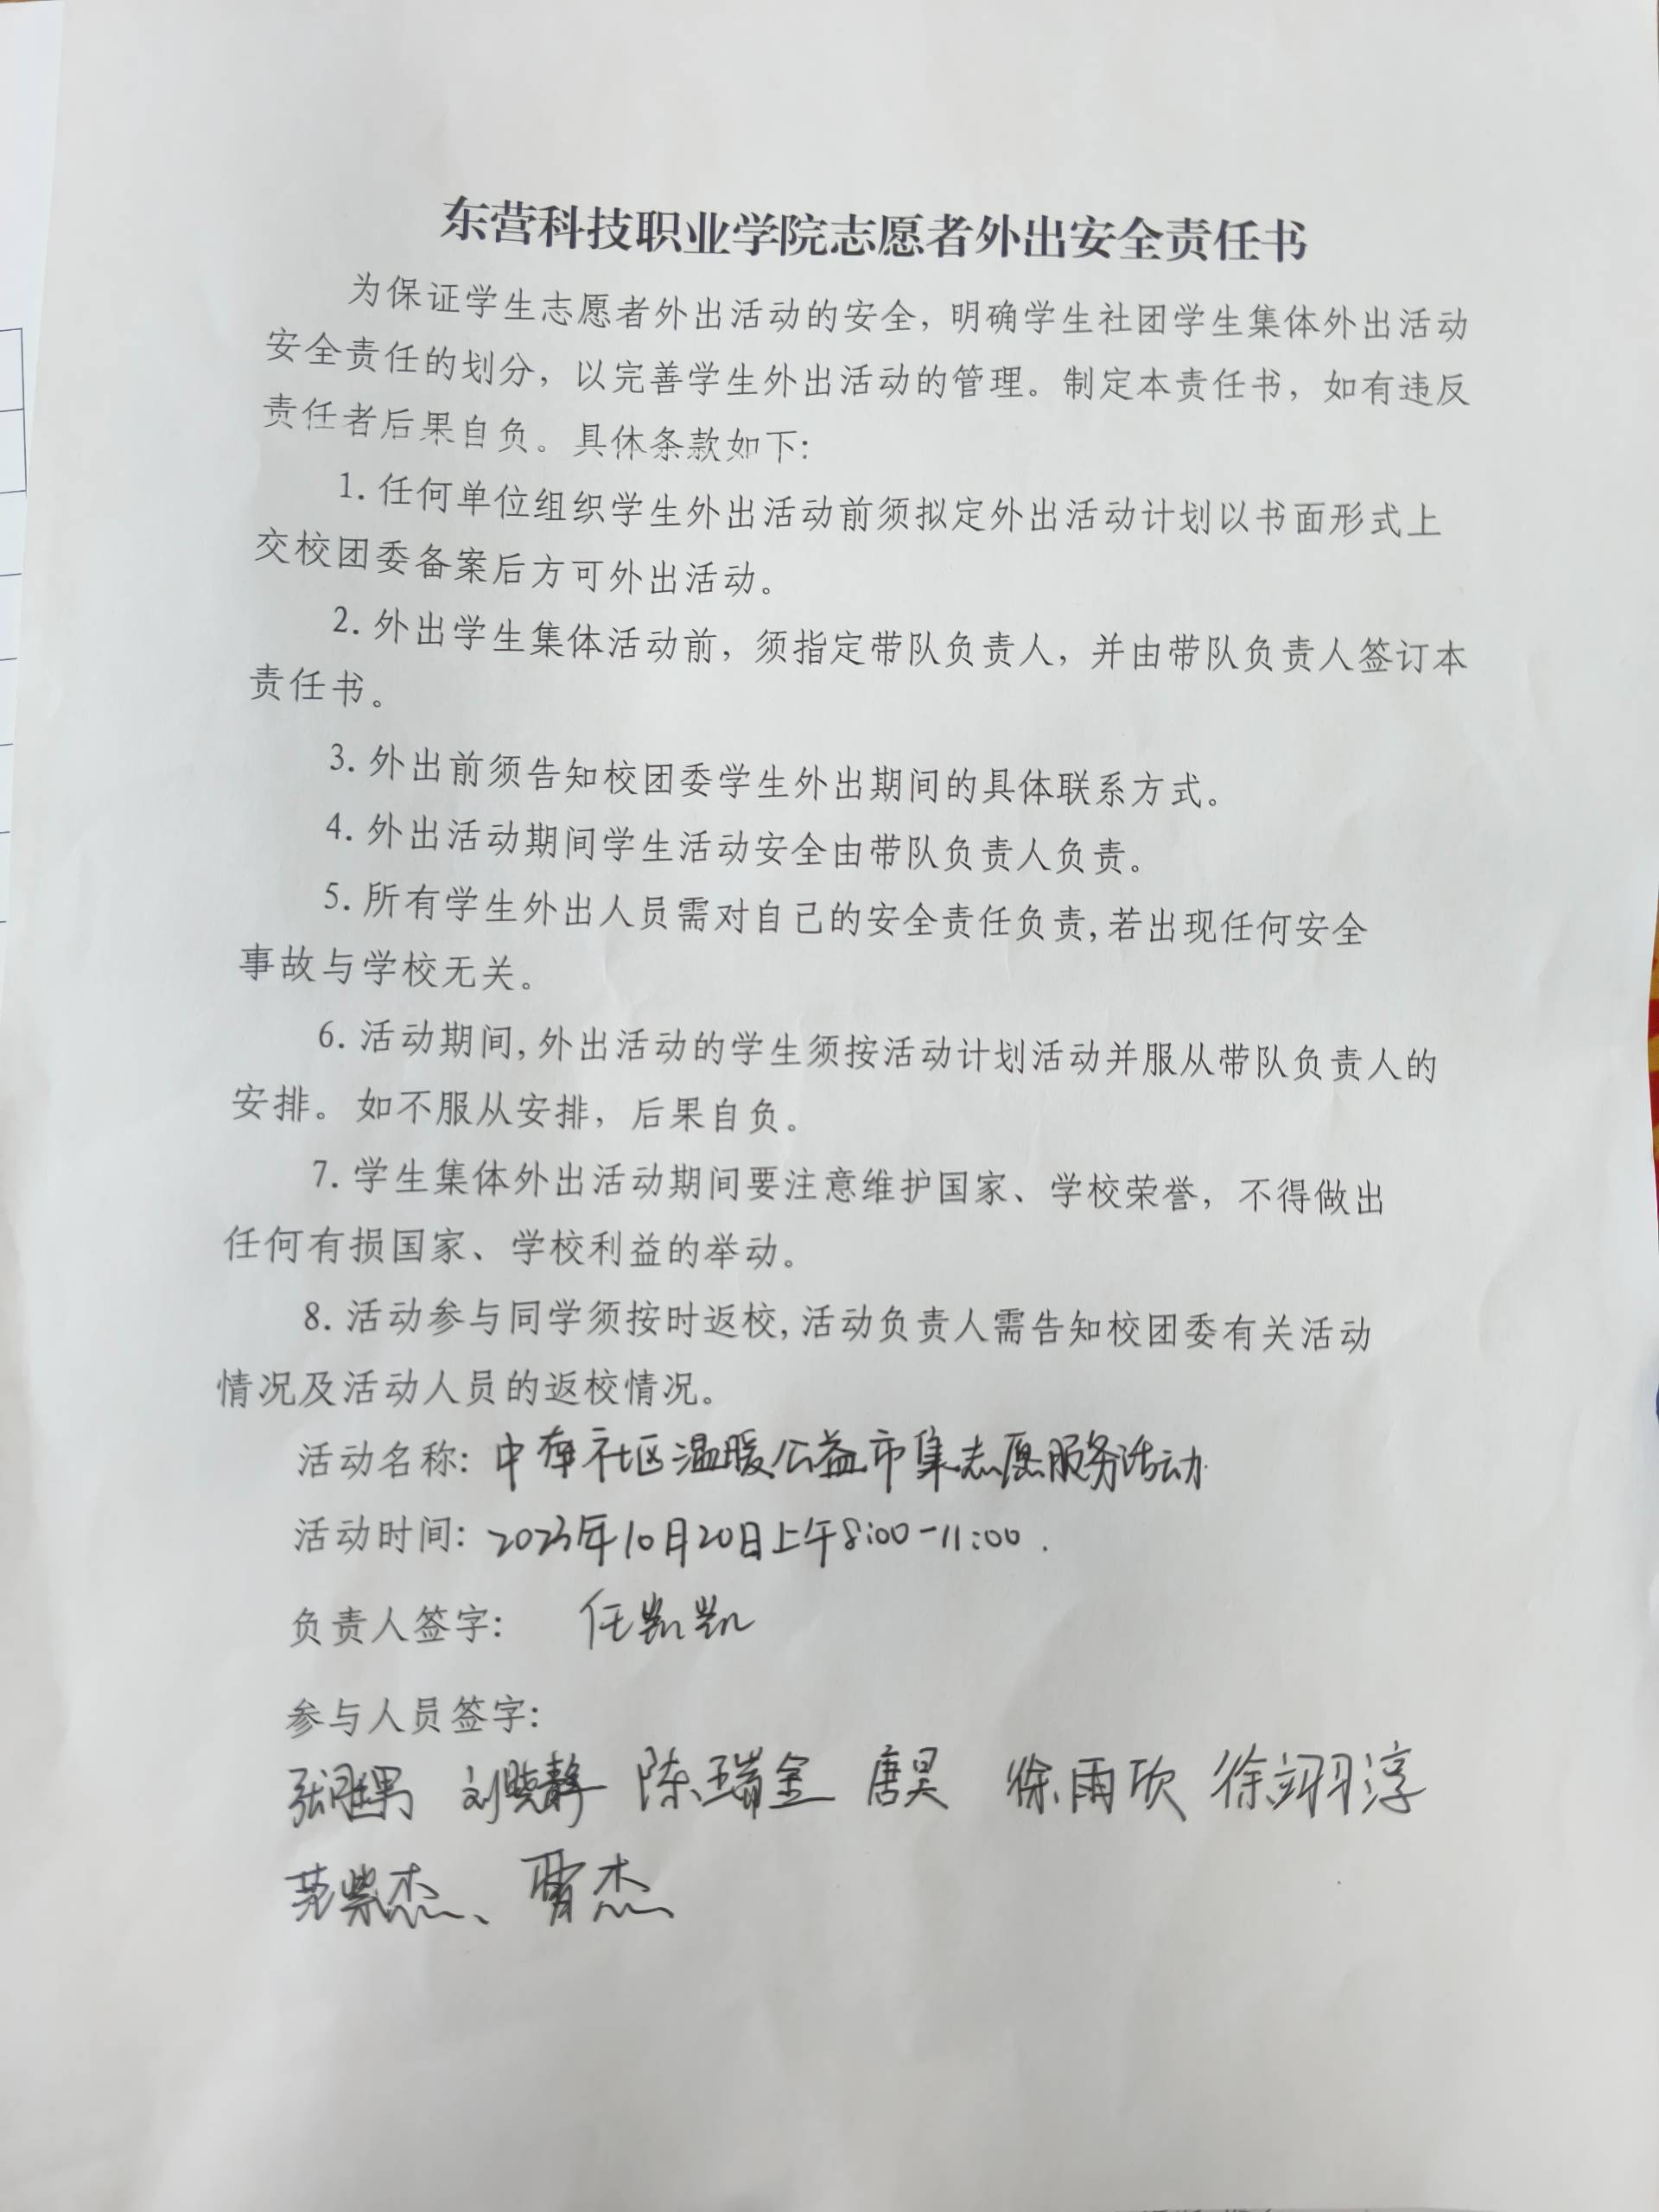 东营科技职业学院志愿者外出安全责任书
为保证学生志愿者外出活动的安全，明确学生社团学生集体外出活动
安全责任的划分，以完善学生外出活动的管理。制定本责任书，如有违反
责任者后果自负。具体条款如下:
1.任何单位组织学生外出活动前须拟定外出活动计划以书面形式上
交校团委备案后方可外出活动。
2.外出学生集体活动前，须指定带队负责人，并由带队负责人签订本
责任书。
3.外出前须告知校团委学生外出期间的具体联系方式。
4.外出活动期间学生活动安全由带队负责人负责。
5.所有学生外出人员需对自己的安全责任负责,若出现任何安全
事故与学校无关。
6.活动期间,外出活动的学生须按活动计划活动并服从带队负责人的
安排。如不服从安排，后果自负。
7.学生集体外出活动期间要注意维护国家、学校荣誉，不得做出
任何有损国家、学校利益的举动。
8.活动参与同学须按时返校,活动负责人需告知校团委有关活动
情况及活动人员的返校情况。
活动名称: 社区温暖公益市集志愿服务活动
活动时间: 2023年10月20日上午8:00-11:00.
负责人签字: 任凯凯
参与人员签字:
刘晓静 陈瑞金 唐昊 徐雨欣 徐翊淳
范紫杰、贾杰